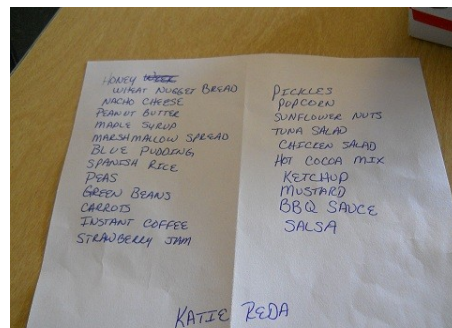 HONEY
WHEAT NUGGET BREAD
NACHO CHEESE
PEANUT BUTTER
MAPLE SYRUP
MARSHMALLOW SPREAD
BLUE PUDDING
SPANISH RICE
PEAS
GREEN BEANS
CARROTS
INSTANT COFFEE
STRAWBERRY JAM
PICKLES
POPCORN
SUNFLOWER NUTS
TUNA SALAD
CHICKEN SALAD
HOT COCOA MIX
KETCHUP
MUSTARD
BBQ SAUCE
SALSA
KATIE REDA